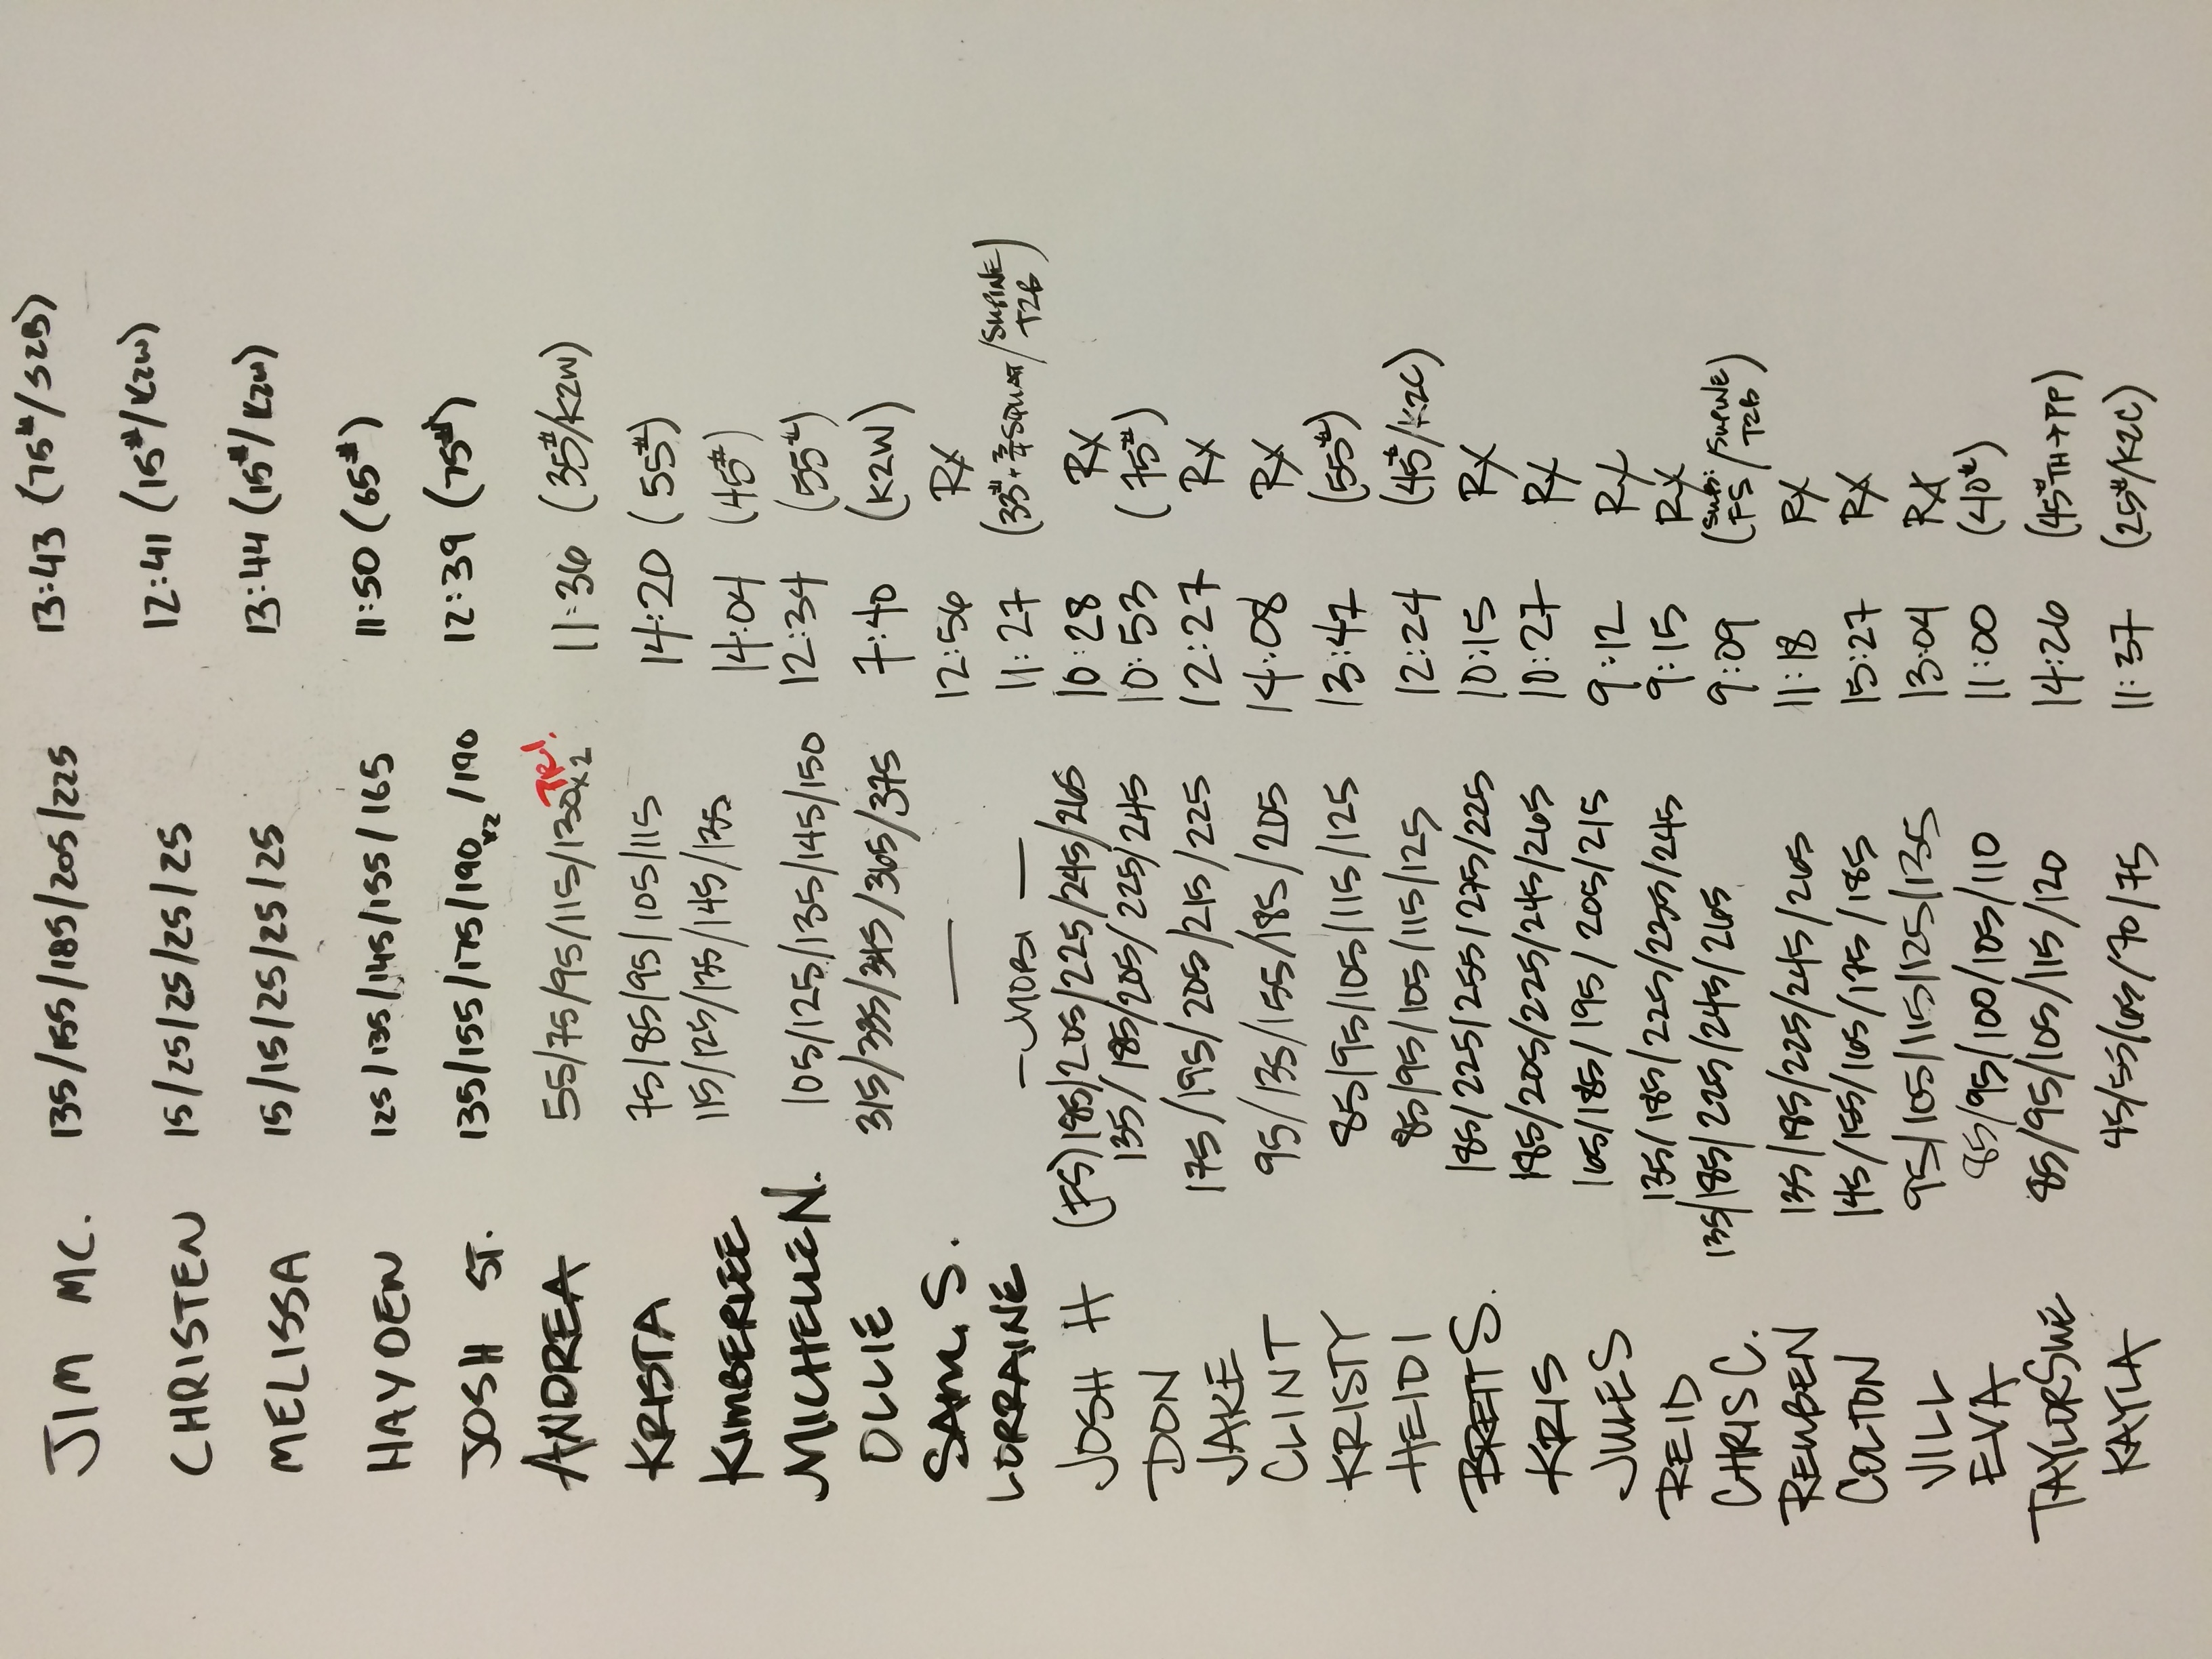 JIM MC. 135/155/185/205/225 13:43 (75#/S2B)
CHRISTEN 15/25/25/25/25 12:41 (15#/K2W)
MELISSA 15/15/25/25/25 13:44 (15#/K2W)
HAYDEN 125/135/145/155/165 11:50 (65#)
JOSH ST. 135/155/175/190x2/190 12:39 (75#)
ANDREA 55/75/95/115/130x2 PR! 11:36 (35#/K2W)
KRISTA 75/85/95/105/115 14:20 (55#)
KIMBERLEE 115/125/135/145/135 14:04 (45#)
MICHELLE N. 105/125/135/145/150 12:34 (55#)
OLLIE 315/335/345/365/375 7:40 (K2W)
SAM S. — 12:56 Rx
LORRAINE — MOPS — 11:27 (33#+ SQUAT/SUPINE T2B)
JOSH H (FS) 185/205/225/245/265 10:28 Rx
DON 135/185/205/225/245 10:53 (75#)
JAKE 175/195/205/215/225 12:27 Rx
CLINT 95/135/155/185/205 14:08 Rx
KRISTY 85/95/105/115/125 13:47 (55#)
HEIDI 85/95/105/115/125 12:24 (45#/K2C)
BRETT S. 185/225/255/275/225 10:15 Rx
KRIS 185/205/225/245/265 10:27 Rx
JULES 165/185/195/205/215 9:12 Rx
REID 135/185/225/235/245 9:15 Rx
CHRIS C. 135/185/225/245/265 9:09 (SUB: FS/SUPINE T2B)
REUBEN 135/185/225/245/265 11:18 Rx
COLTON 145/155/165/175/185 15:27 Rx
JILL 95/105/115/125/135 13:04 Rx
EVA 85/95/100/105/110 11:00 (40#)
TAYLOR SWE 85/95/105/115/120 14:26 (45# TH→PP)
KAYLA 45/55/65/70/75 11:37 (25#/K2C)